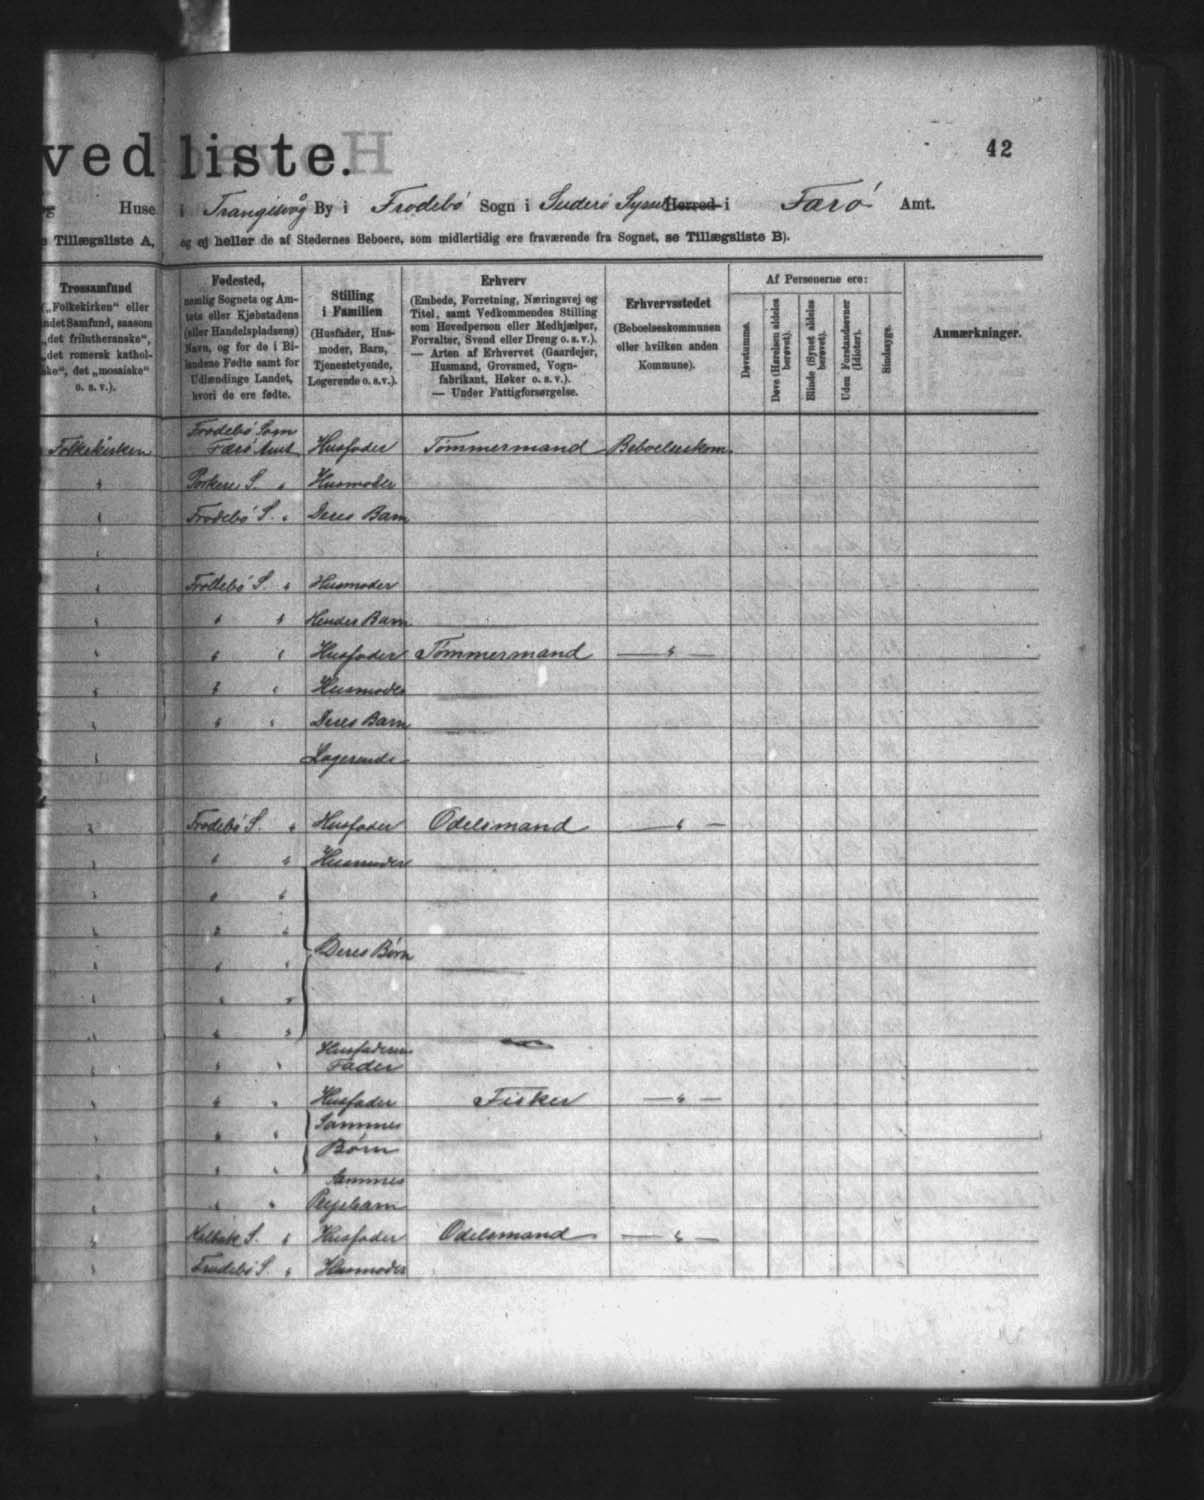 vedliste.
42
Huse i Trangisvåg By i Frodebø Sogn i Suderø Syssel Herred i Færø Amt.
Tillægsliste A, og ej heller de af Stedernes Beboere, som midlertidig ere fraværende fra Sognet, se Tillægsliste B).
Trossamfund
(„Folkekirken“ eller
andet Samfund, saasom
„det frilutheranske“,
„det romersk kathol-
ske“, det „mosaiske“
o. s. v.).
Fødested,
nemlig Sognets og Am-
tets eller Kjøbstadens
(eller Handelspladsens)
Navn, og for de i Bi-
landene Fødte samt for
Udlændinge Landet,
hvori de ere fødte.
Stilling
i Familien
(Husfader, Hus-
moder, Barn,
Tjenestetyende,
Logerende o. s. v.).
Erhverv
(Embede, Forretning, Næringsvej og
Titel, samt Vedkommendes Stilling
som Hovedperson eller Medhjælper,
Forvalter, Svend eller Dreng o. s. v.).
— Arten af Erhvervet (Gaardejer,
Husmand, Grovsmed, Vogn-
fabrikant, Høker o. s. v.).
— Under Fattigforsørgelse.
Erhvervsstedet
(Beboelseskommunen
eller hvilken anden
Kommune).
Af Personerne ere:
Døvstumme.
Døve (Hørelsen aldeles
berøvet).
Blinde (Synet aldeles
berøvet).
Uden Forstandsevner
(Idioter).
Sindssyge.
Anmærkninger.
Frodebø Som
Folkekirken Færø Amt Husfader Tømmermand Beboelseskom.
" Porkere S. " Husmoder
" Frodebø S. " Deres Barn
"
" Frodebø S. " Husmoder
" " " Hendes Barn
" " " Husfader Tømmermand — " —
" " " Husmoder
" " " Deres Barn
" Logerende
" Frodebø S. " Husfader Odelsmand — " —
" " " Husmoder
" " "
" " "
Deres Børn
" " "
" " "
" " "
Husfaderens
" " " Fader
" " " Husfader Fisker — " —
Sammes
" " "
Børn
" " "
Sammes
" " " Plejebarn
" S. " Husfader Odelsmand — " —
" Frodebø S. " Husmoder